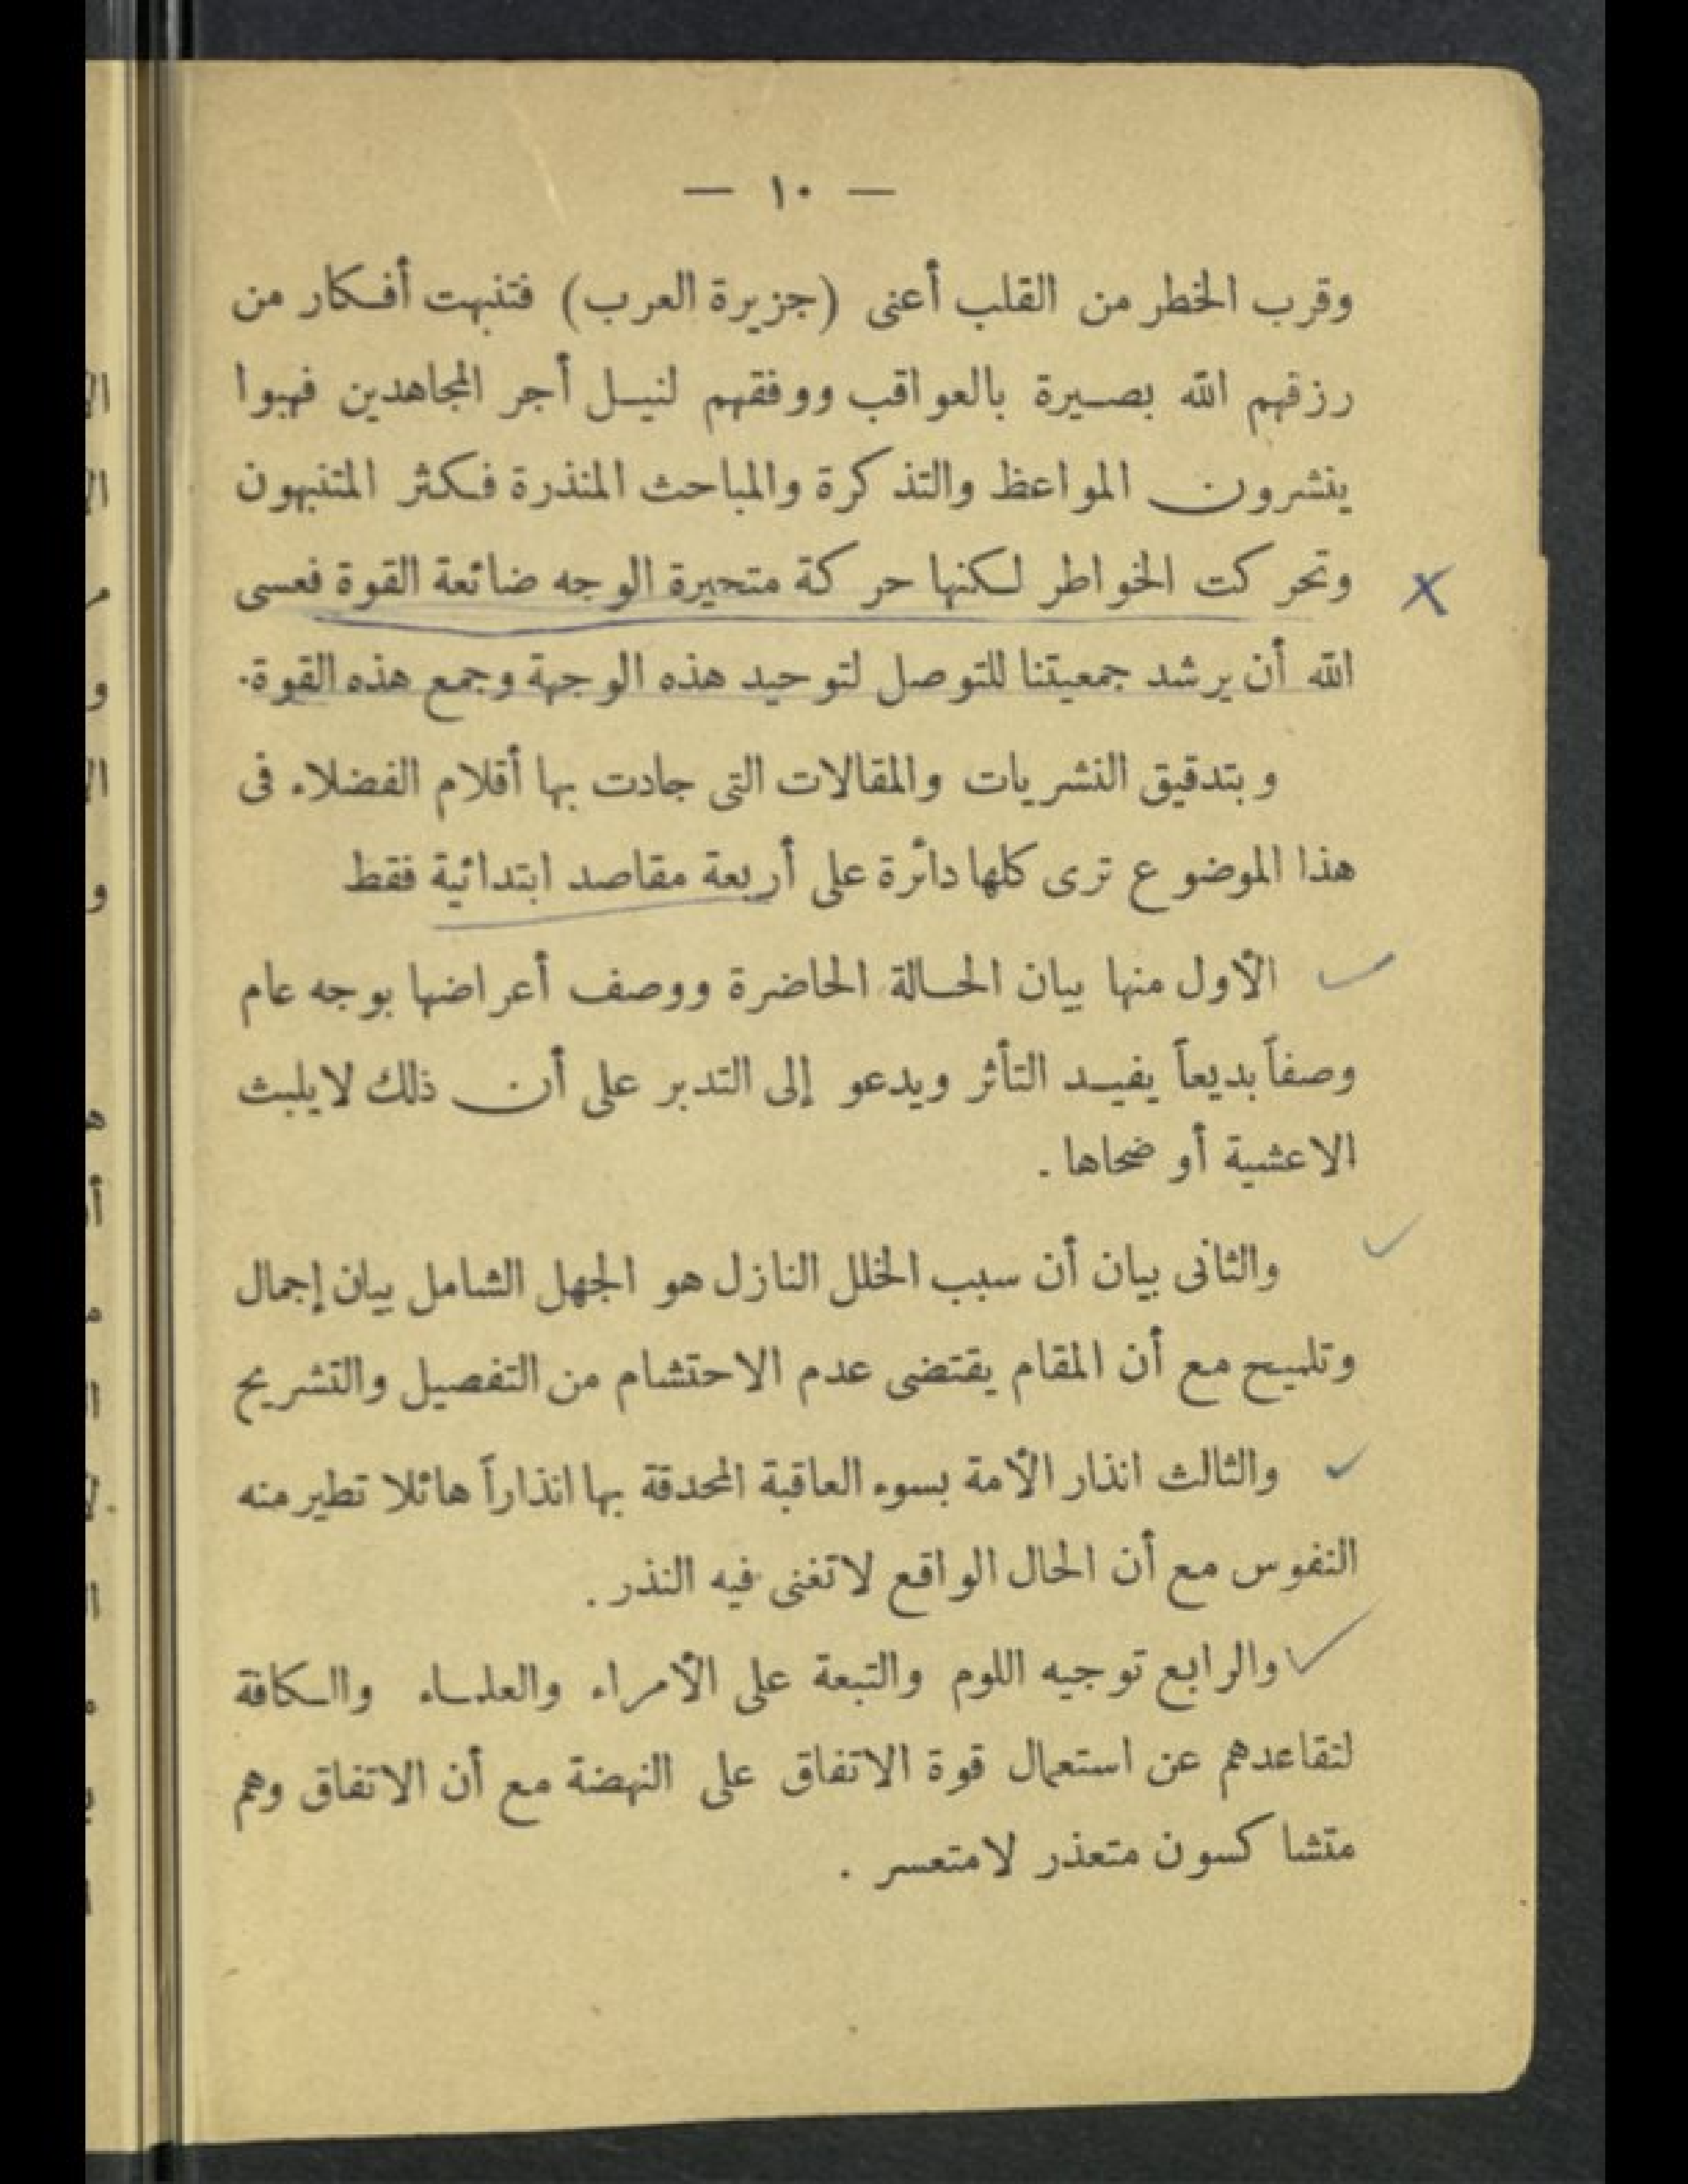 — ١٠ —
وقرب الخطر من القلب أعنى (جزيرة العرب) فتنبهت أفكار من
رزقهم الله بصيرة بالعواقب ووفقهم لنيل أجر المجاهدين فهبوا
ينشرون المواعظ والتذكرة والمباحث المنذرة فكثر المتنبهون
وتحركت الخواطر لكنها حركة متحيرة الوجه ضائعة القوة فعسى
الله أن يرشد جمعيتنا للتوصل لتوحيد هذه الوجهة وجمع هذه القوة.
وبتدقيق النشريات والمقالات التى جادت بها أقلام الفضلاء فى
هذا الموضوع ترى كلها دائرة على أربعة مقاصد ابتدائية فقط
الأول منها بيان الحالة الحاضرة ووصف أعراضها بوجه عام
وصفاً بديعاً يفيد التأثر ويدعو إلى التدبر على أن ذلك لايلبث
الاعشية أو ضحاها .
والثانى بيان أن سبب الخلل النازل هو الجهل الشامل بيان إجمال
وتلميح مع أن المقام يقتضى عدم الاحتشام من التفصيل والتشريح
والثالث انذار الأمة بسوء العاقبة المحدقة بها انذاراً هائلا تطير منه
النفوس مع أن الحال الواقع لاتغنى فيه النذر .
والرابع توجيه اللوم والتبعة على الأمراء والعلماء والكافة
لتقاعدهم عن استعمال قوة الاتفاق على النهضة مع أن الاتفاق وهم
متشاكسون متعذر لامتعسر .